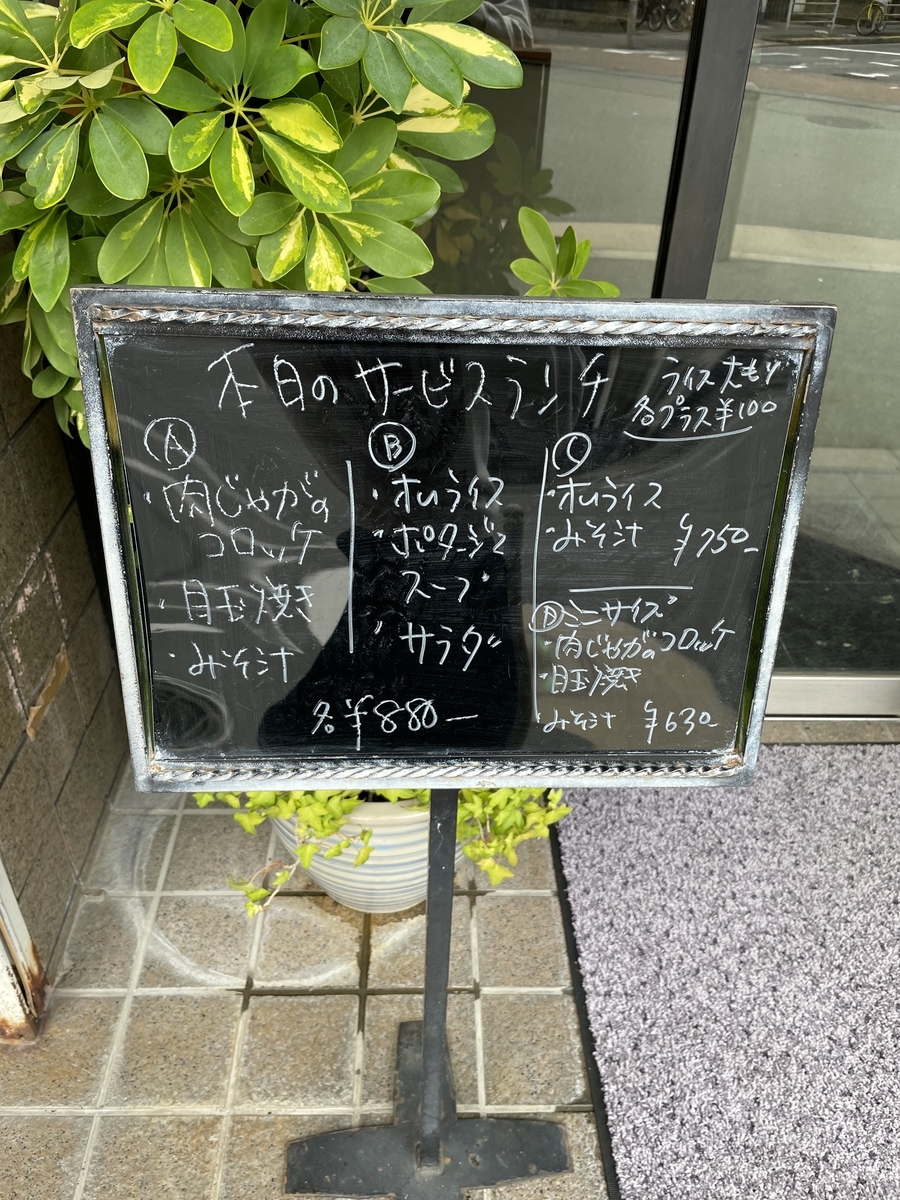 本日のサービスランチ
ライス大もり
各プラス¥100
Ⓐ
・肉じゃがの
コロッケ
・目玉焼き
・みそ汁
Ⓑ
・オムライス
・ポタージュ
スープ
・サラダ
各¥880ー
Ⓒ
・オムライス
・みそ汁 ¥750-
ミニサイズ
・肉じゃがのコロッケ
・目玉焼き
・みそ汁 ¥630-